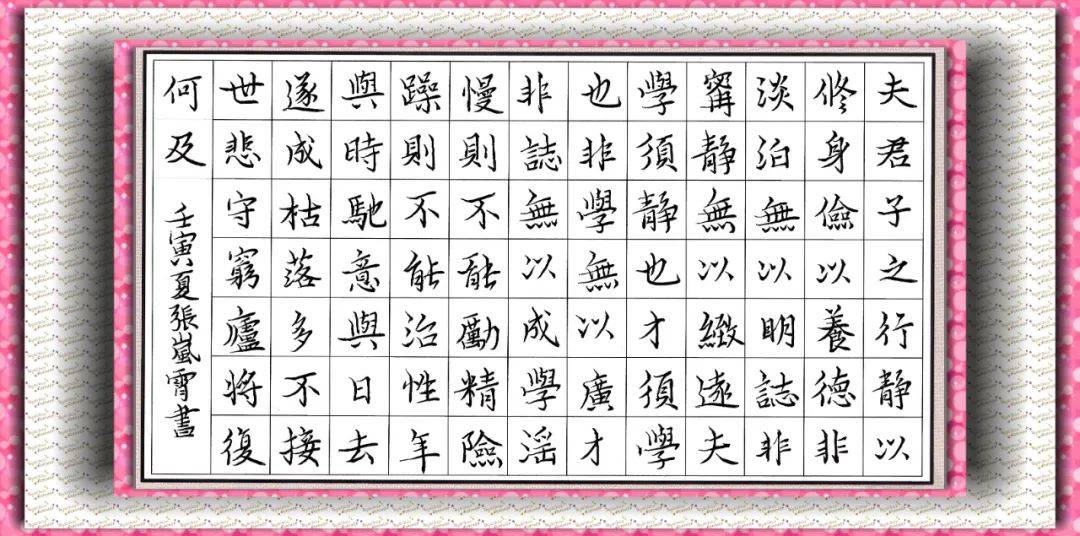 夫君子之行静以
修身儉以養德非
淡泊無以明誌非
寧静無以緻遠夫
學須静也才須學
也非學無以廣才
非誌無以成學滛
慢則不能勵精險
躁則不能治性年
與時馳意與日去
遂成枯落多不接
世悲守窮廬將復
何及
壬寅夏張嵐霄書